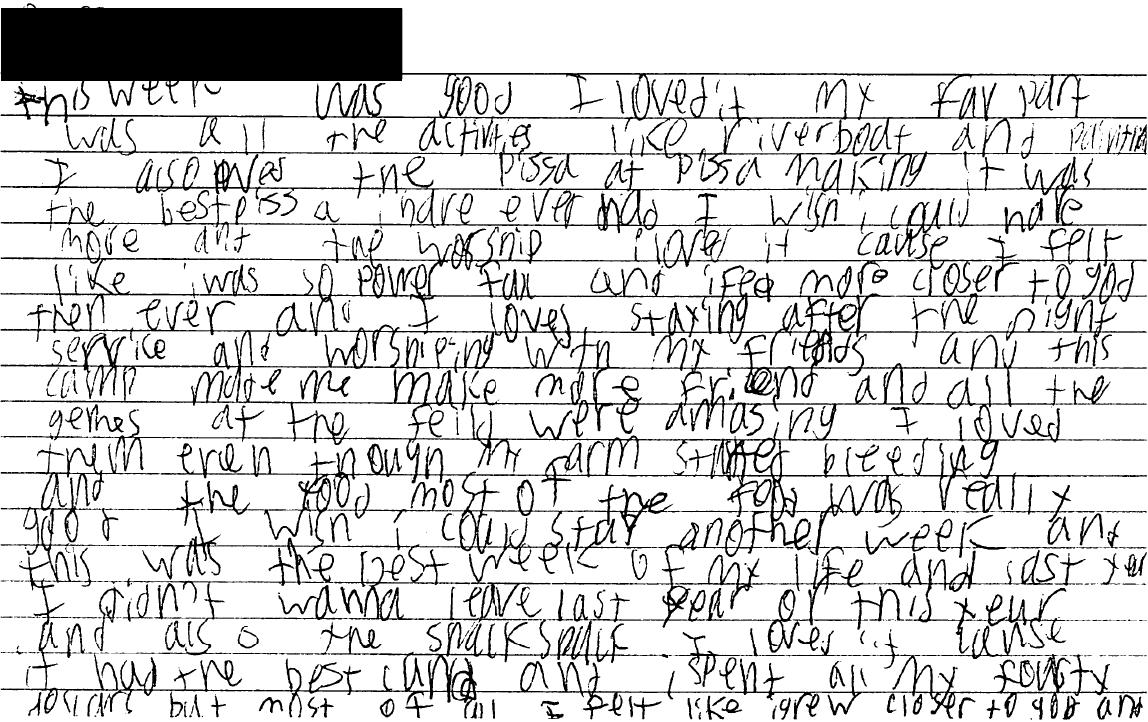 this week was good I loved it my fav part
was all the activities like riverboat and
I also loves the pissa at pissa making it was
the best pissa i have ever had I wish i could have
more and the worship i loved it cause I felt
like i was so power full and i feel more closer to god
then ever and I loves staying after the night
service and worshiping with my friends and this
camp made me make more friend and all the
gemes at the feild were amasing I loved
them even though my arm started bleeding
and the food most of the food was really
good I wish i could stay another week and
this was the best week of my life and last year
I didn't wanna leave last year or this year
and also the I loved it cause
it had the best and i spent all my fourty
but most of all I felt like i grew closer to god and